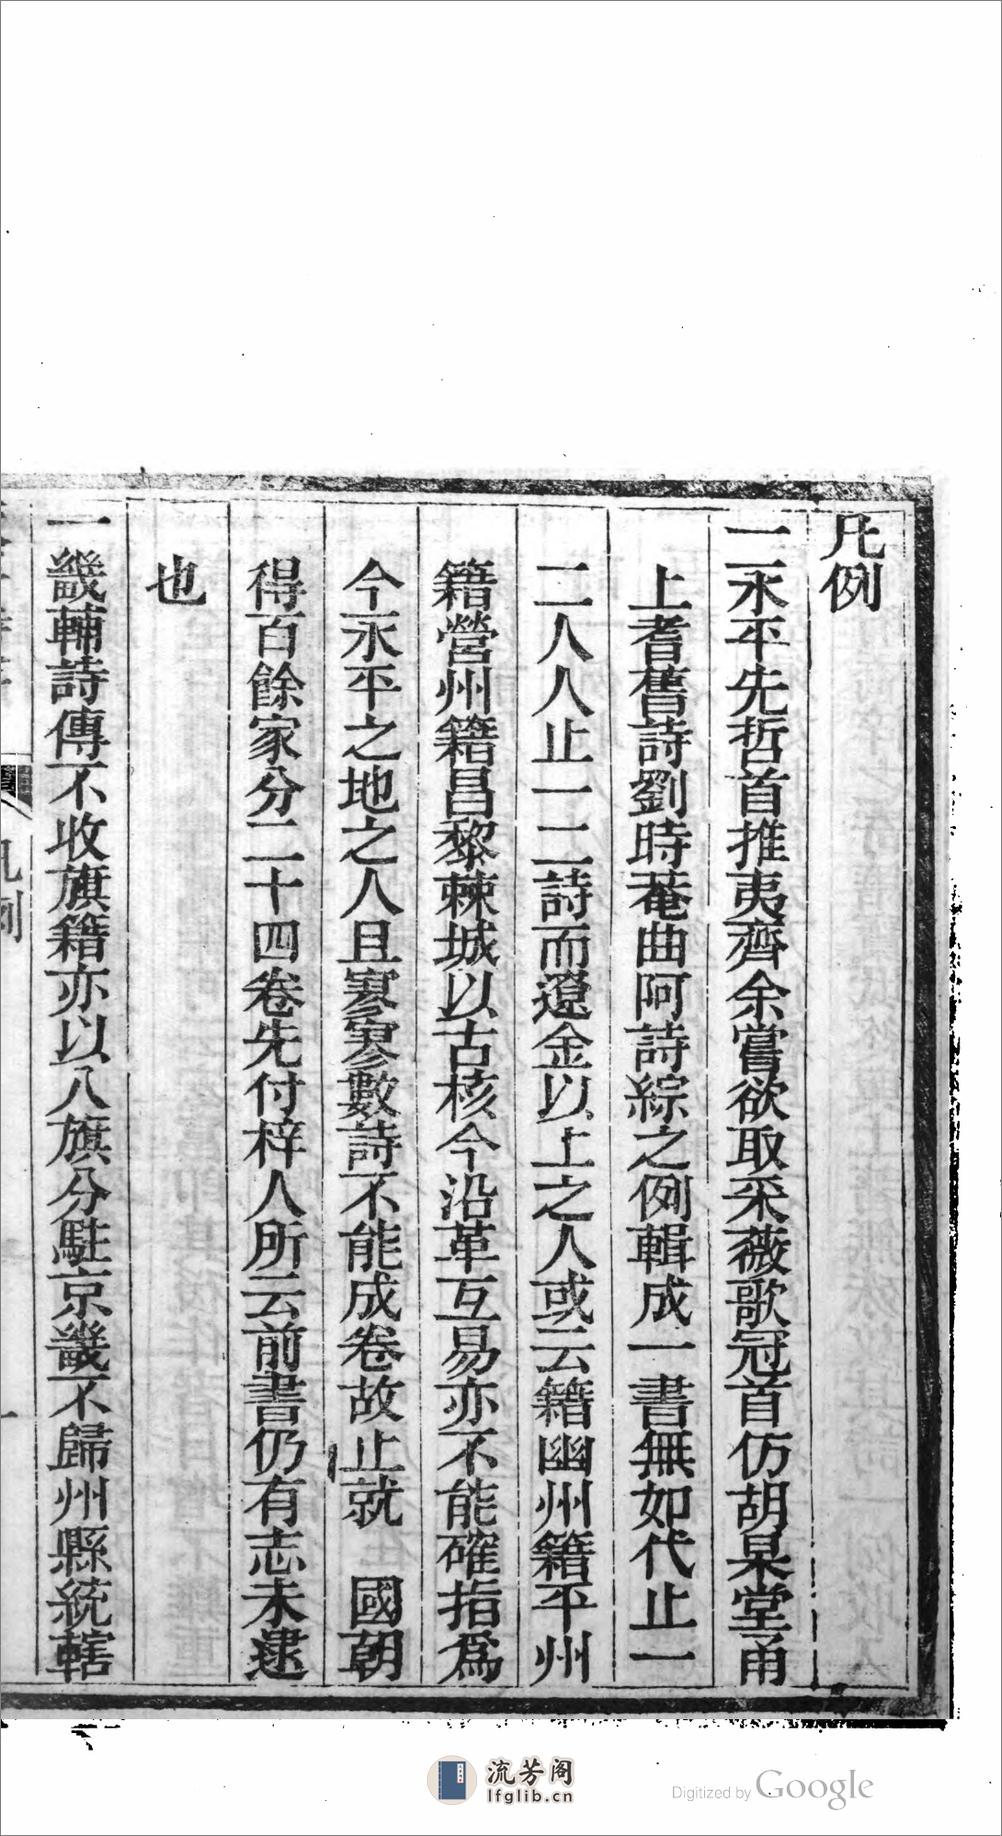 凡例
一永平先哲首推夷齊余嘗欲取采薇歌冠首仿胡杲堂甬
上耆舊詩劉時菴曲阿詩綜之例輯成一書無如代止一
二人人止一二詩而遼金以上之人或云籍幽州籍平州
籍營州籍昌黎棘城以古核今沿革互易亦不能確指爲
今永平之地之人且寥寥數詩不能成卷故止就　國朝
得百餘家分二十四卷先付梓人所云前書仍有志未逮
也
一畿輔詩傳不收旗籍亦以八旗分駐京畿不歸州縣統轄
凡例
一
流芳阁
lfglib.cn
Digitized by Google